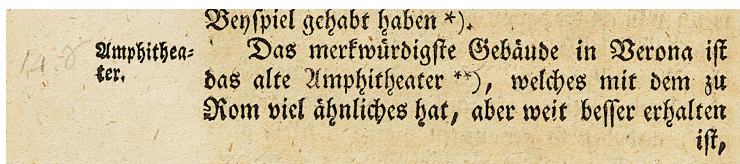 Beyſpiel gehabt haben *).
Amphithea-
ter.
Das merkwürdigſte Gebäude in Verona iſt
das alte Amphitheater **), welches mit dem zu
Rom viel ähnliches hat, aber weit beſſer erhalten
iſt,